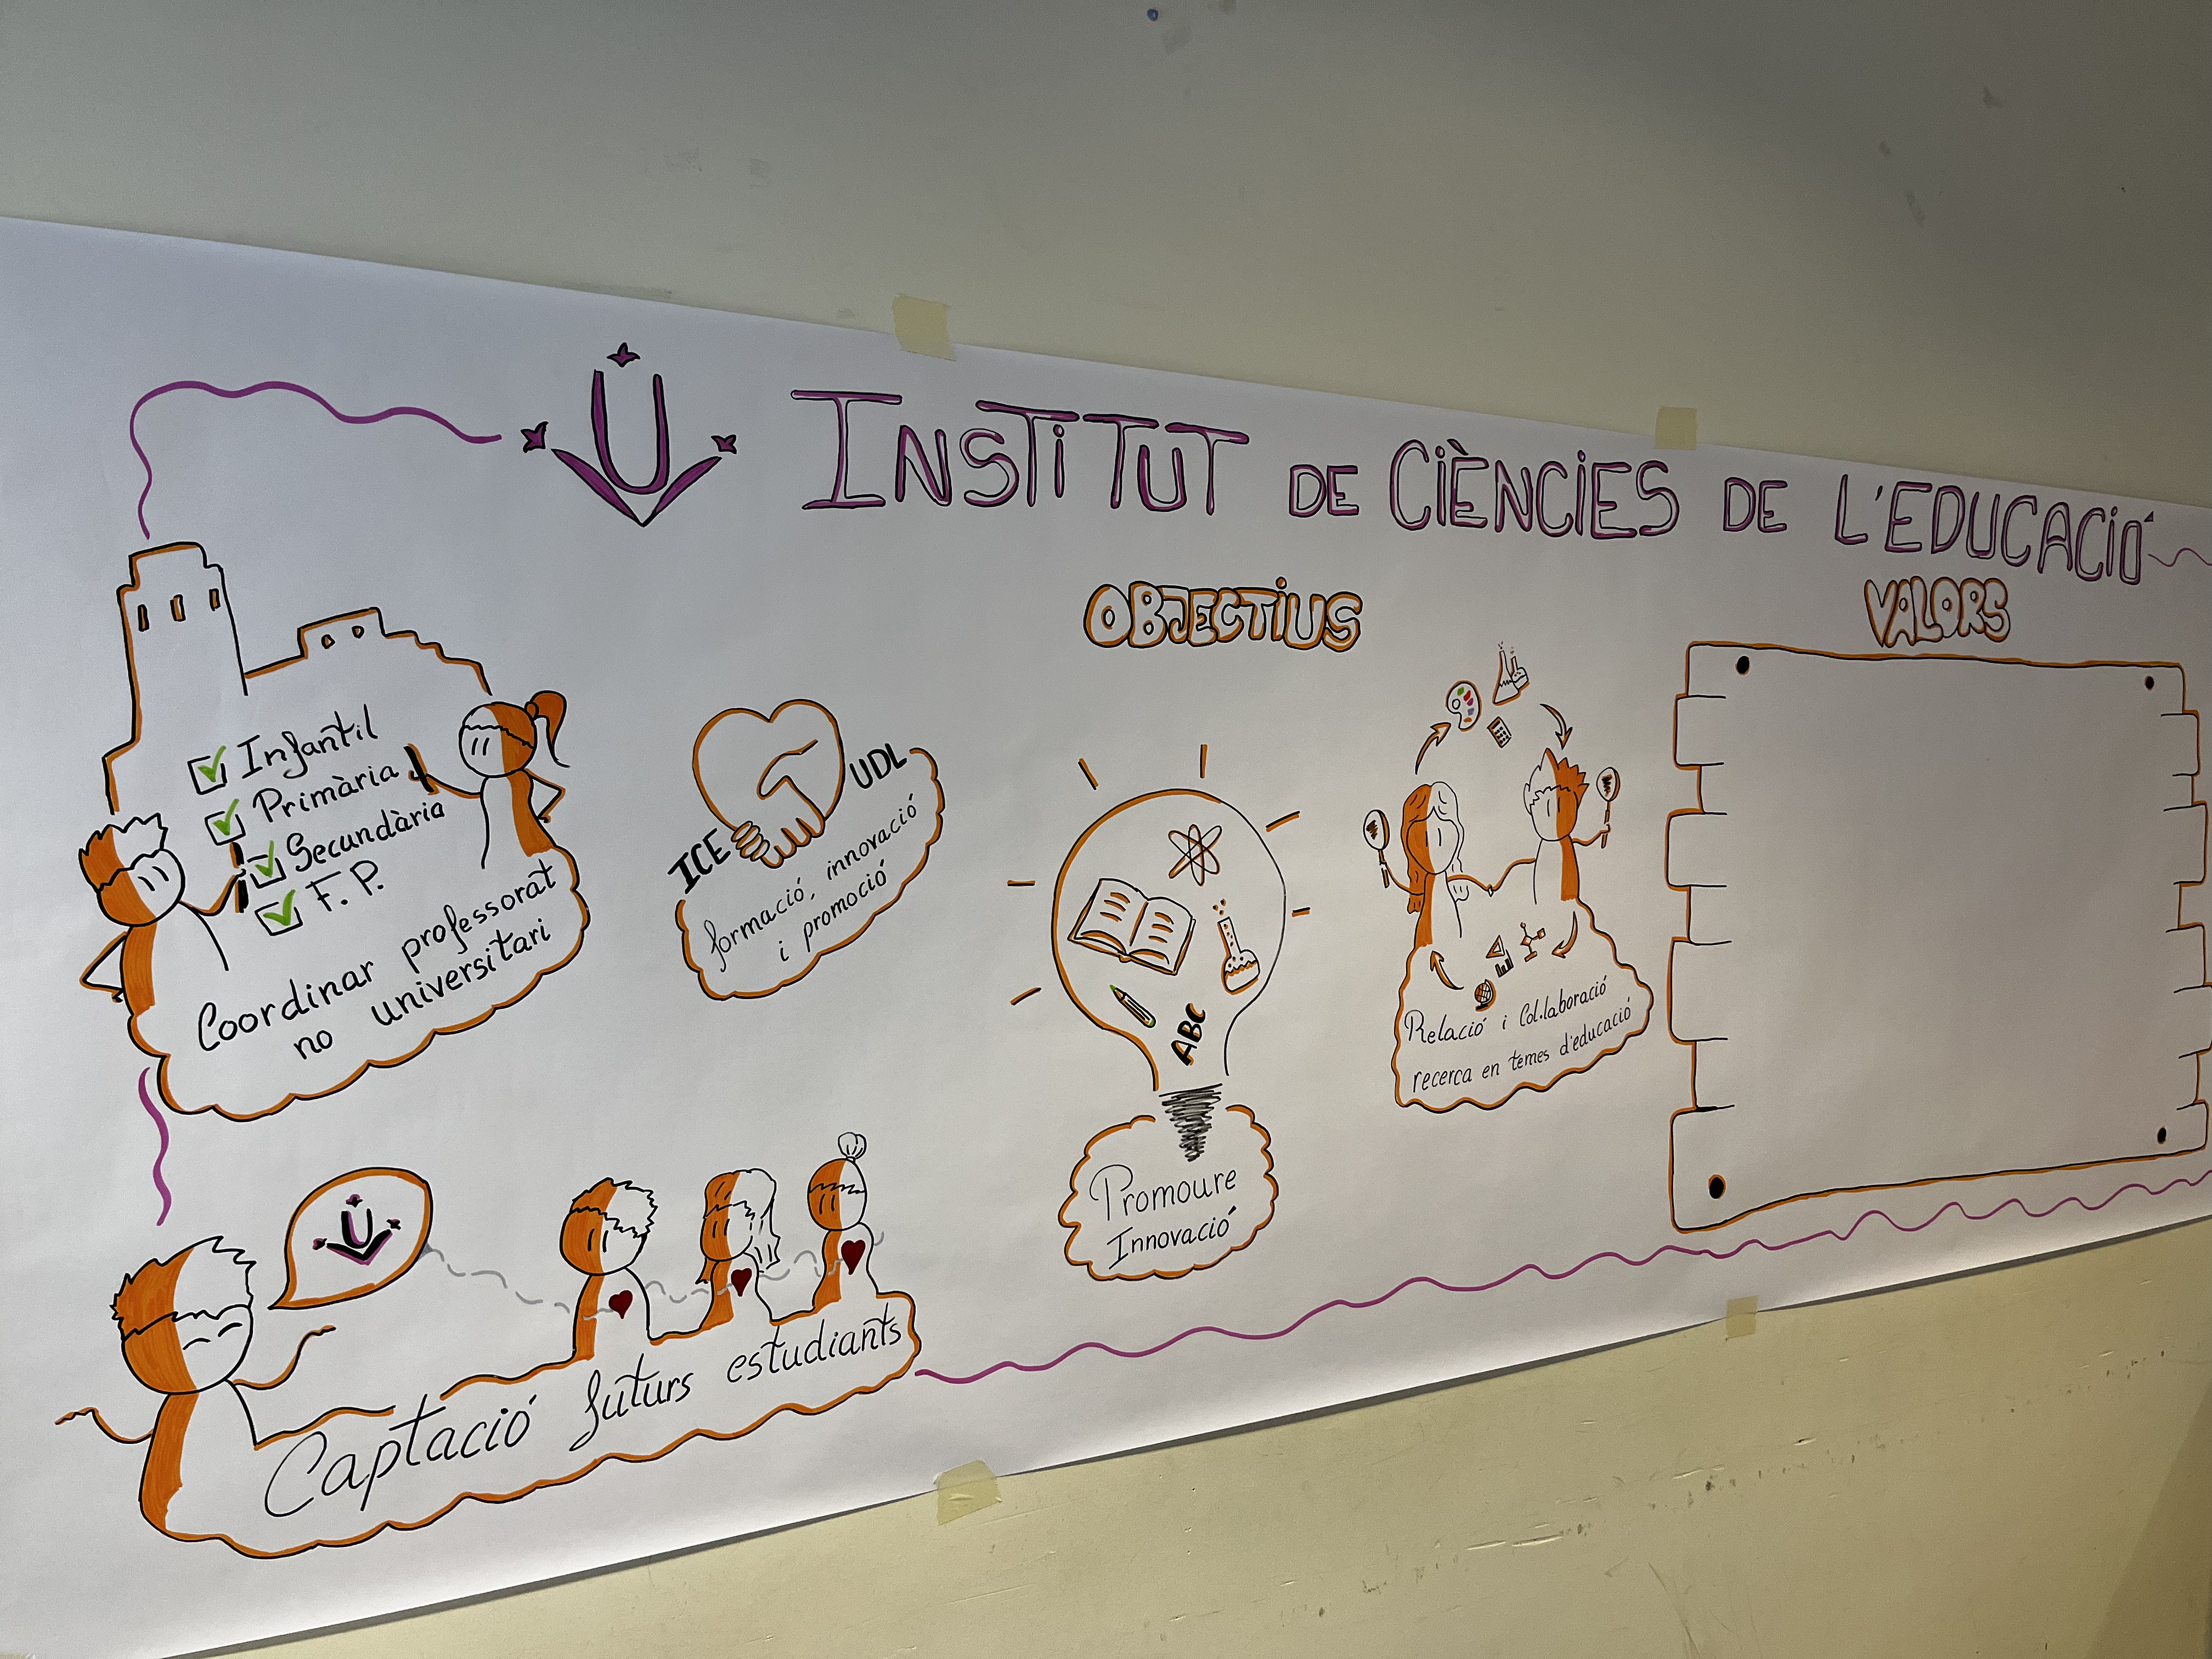 INSTITUT DE CIÈNCIES DE L'EDUCACIÓ
OBJECTIUS
VALORS
Infantil
Primària
Secundària
F. P.
Coordinar professorat
no universitari
ICE
UDL
formació, innovació
i promoció
ABC
Promoure
Innovació
Relació i Col·laboració
recerca en temes d'educació
U
Captació futurs estudiants